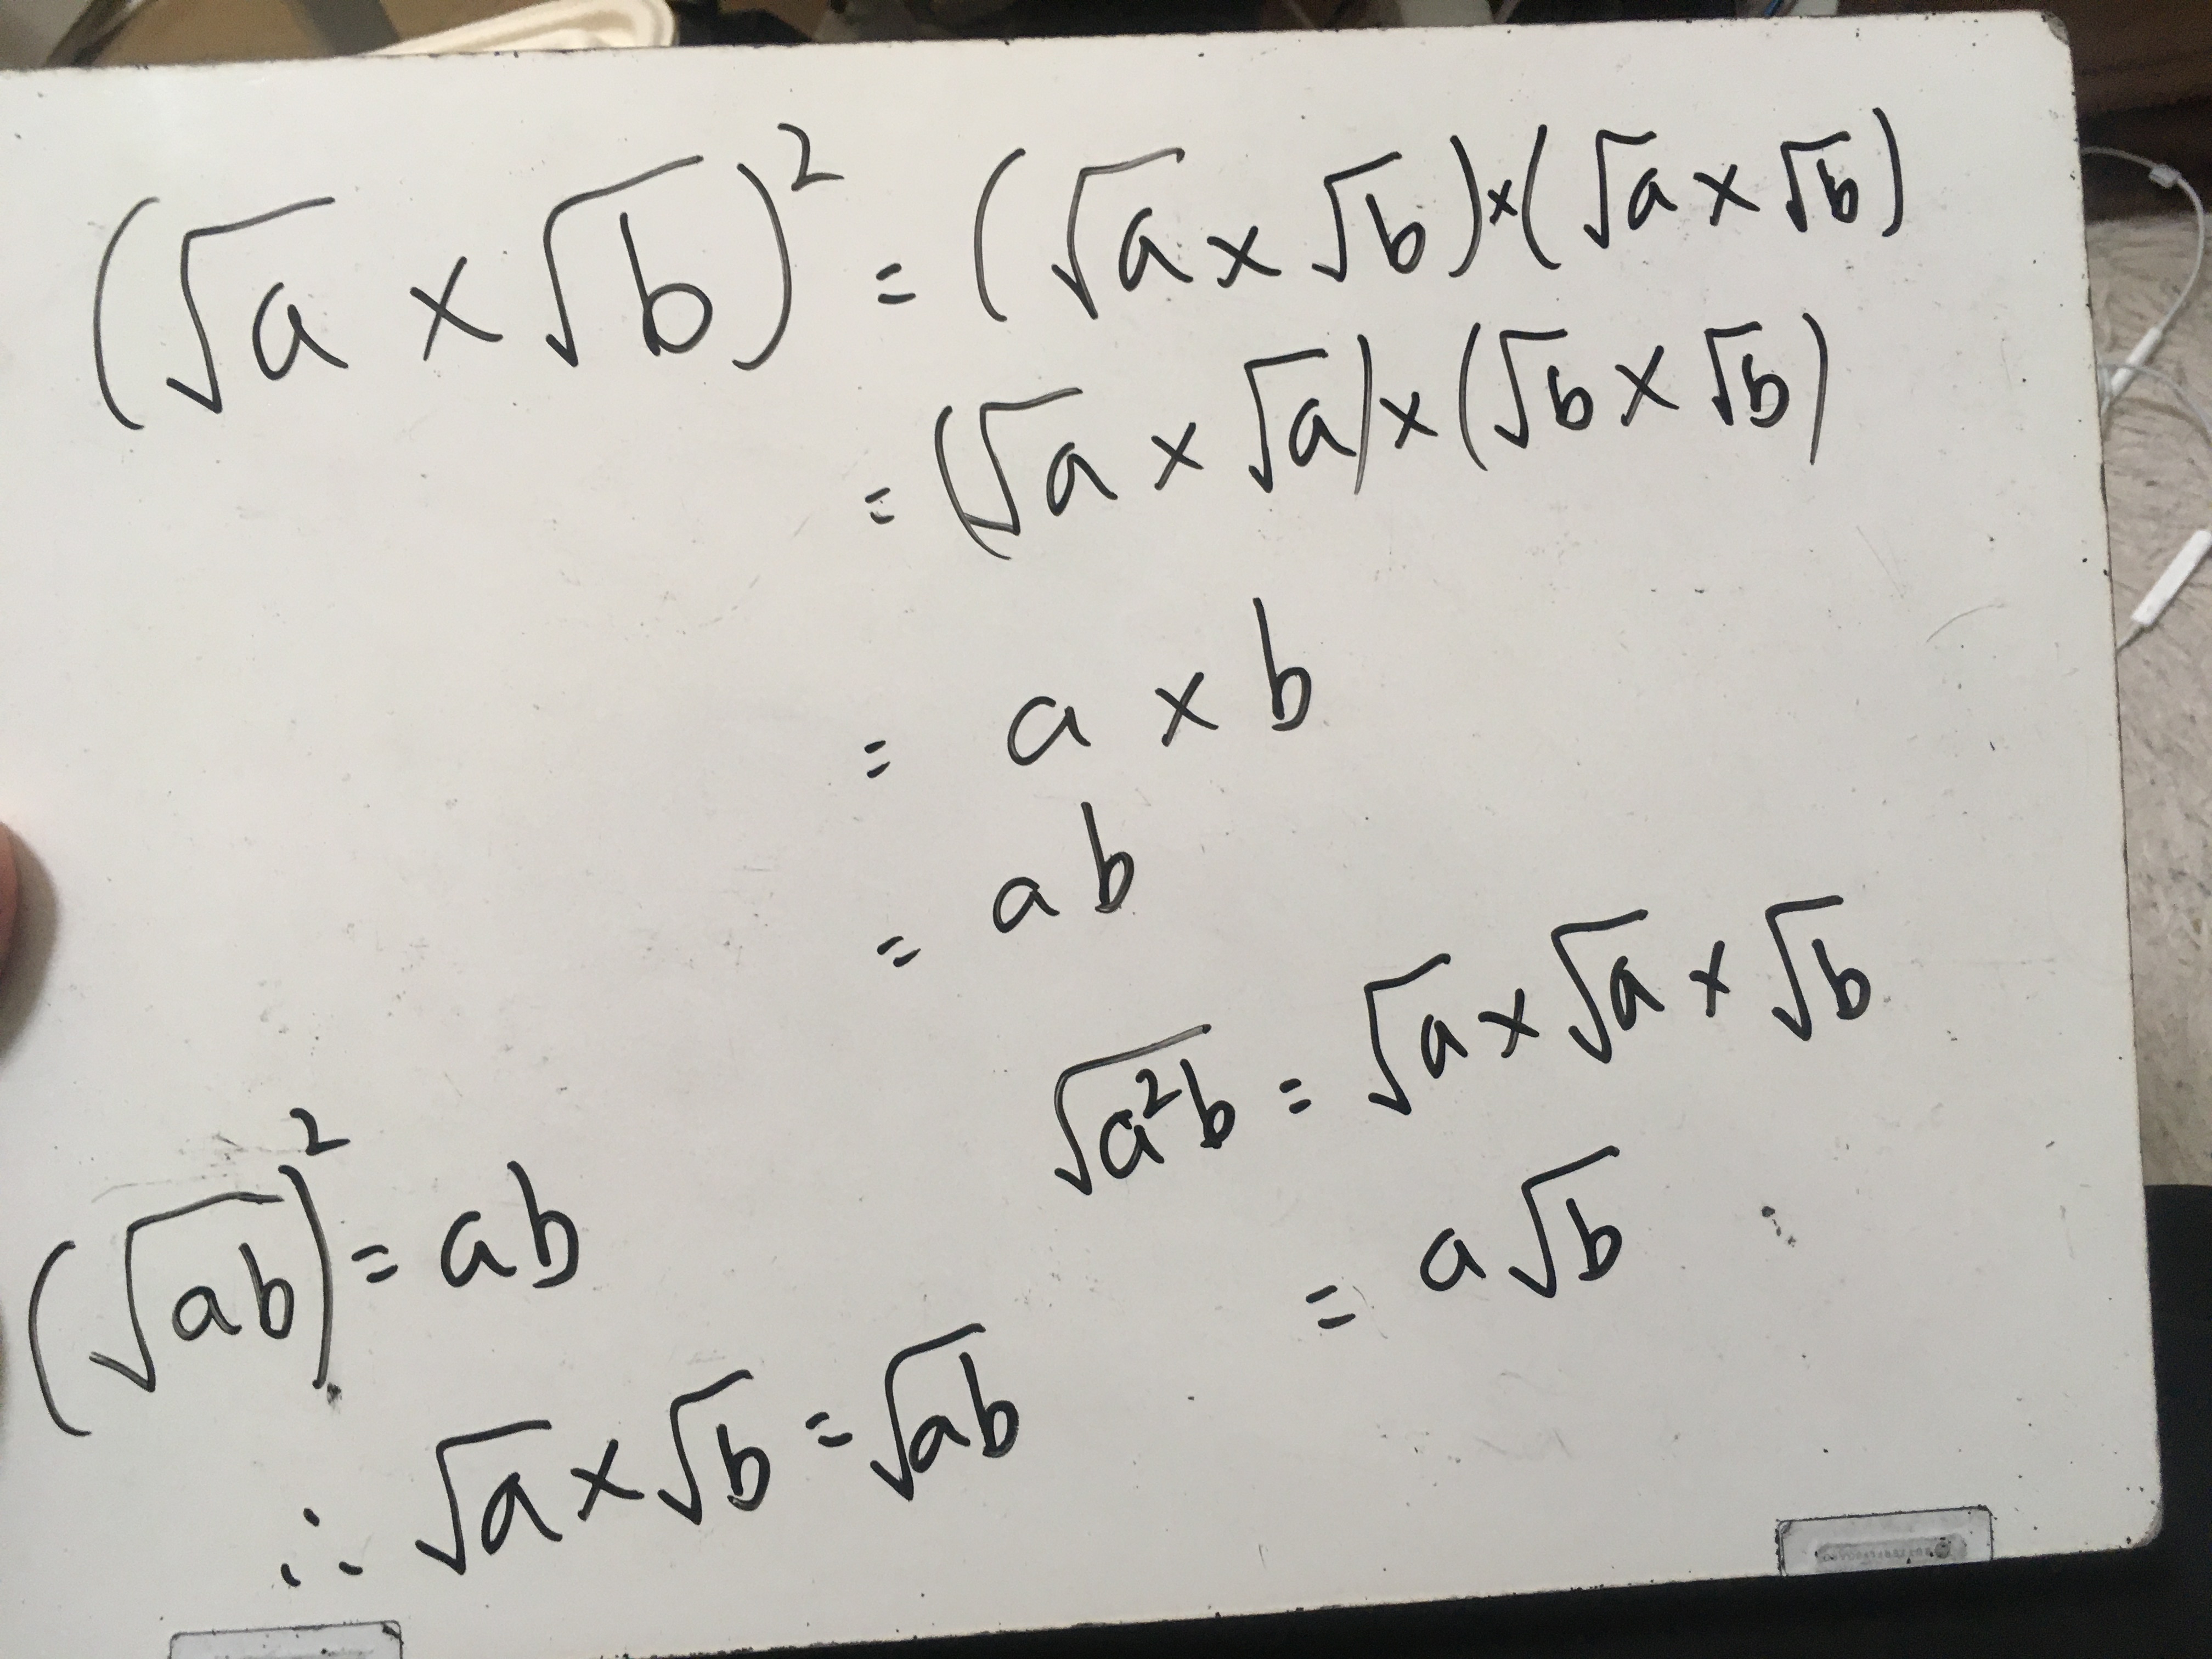 (√a × √b)² = (√a × √b) × (√a × √b)
= (√a × √a) × (√b × √b)
= a × b
= ab
√a²b = √a × √a × √b
= a√b
(√ab)² = ab
∴ √a × √b = √ab